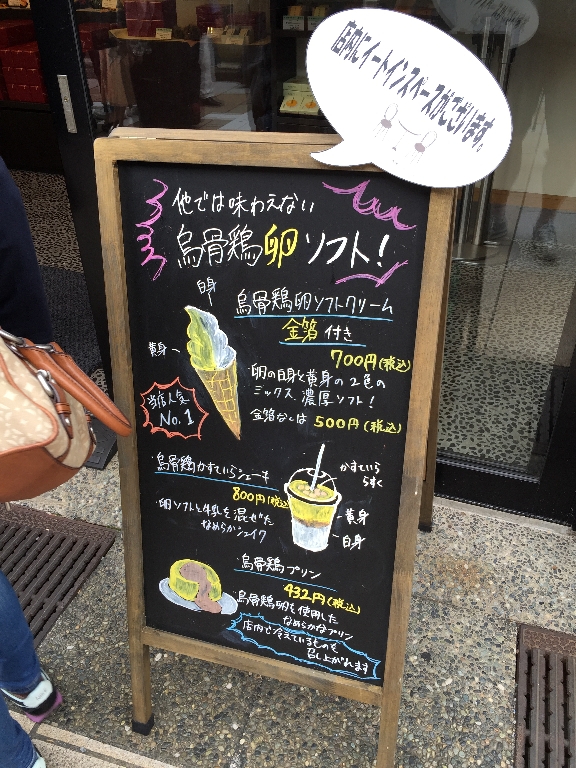 店内にイートインスペースがございます。
他では味わえない
烏骨鶏卵ソフト!
白身
黄身
烏骨鶏卵ソフトクリーム
金箔付き
700円(税込)
卵の白身と黄身の2色の
ミックス、濃厚ソフト!
金箔なしは500円(税込)
当店人気
No.1
烏骨鶏かすていらシェーキ
800円(税込)
卵ソフトと牛乳を混ぜた
なめらかシェイク
かすていら
らすく
黄身
白身
烏骨鶏プリン
432円(税込)
烏骨鶏卵を使用した
なめらかなプリン
店内で冷えているものを
召し上がれます